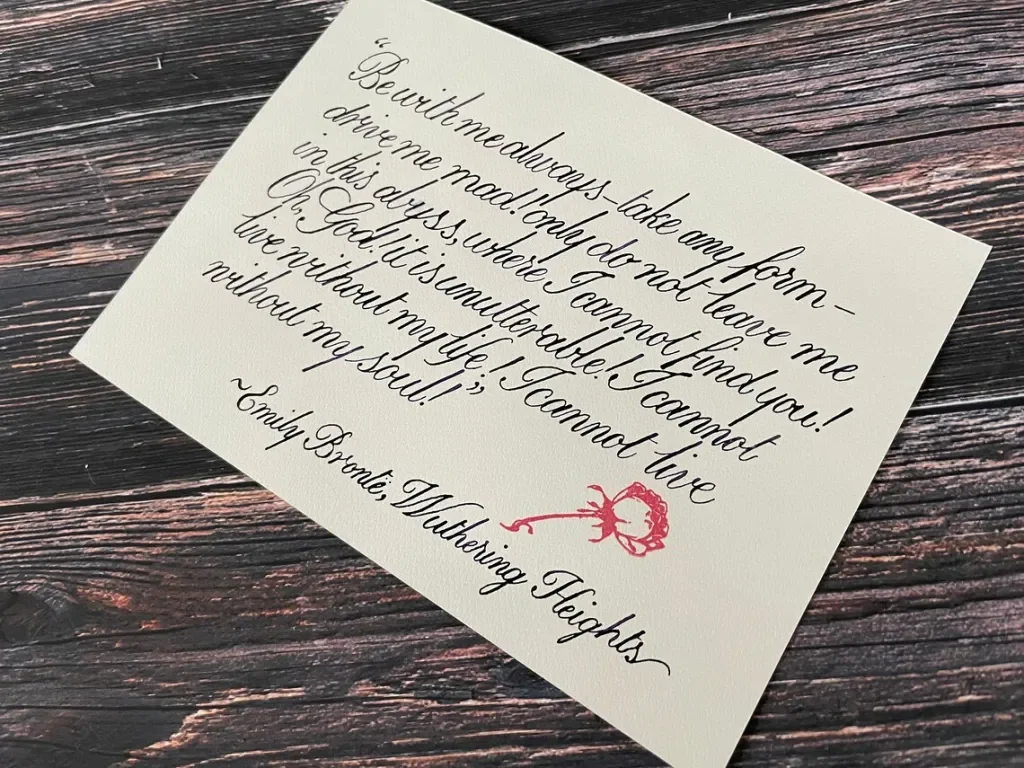 "Be with me always–take any form–
drive me mad! only do not leave me
in this abyss, where I cannot find you!
Oh, God! it is unutterable! I cannot
live without my life! I cannot live
without my soul!"
~Emily Brontë, Wuthering Heights